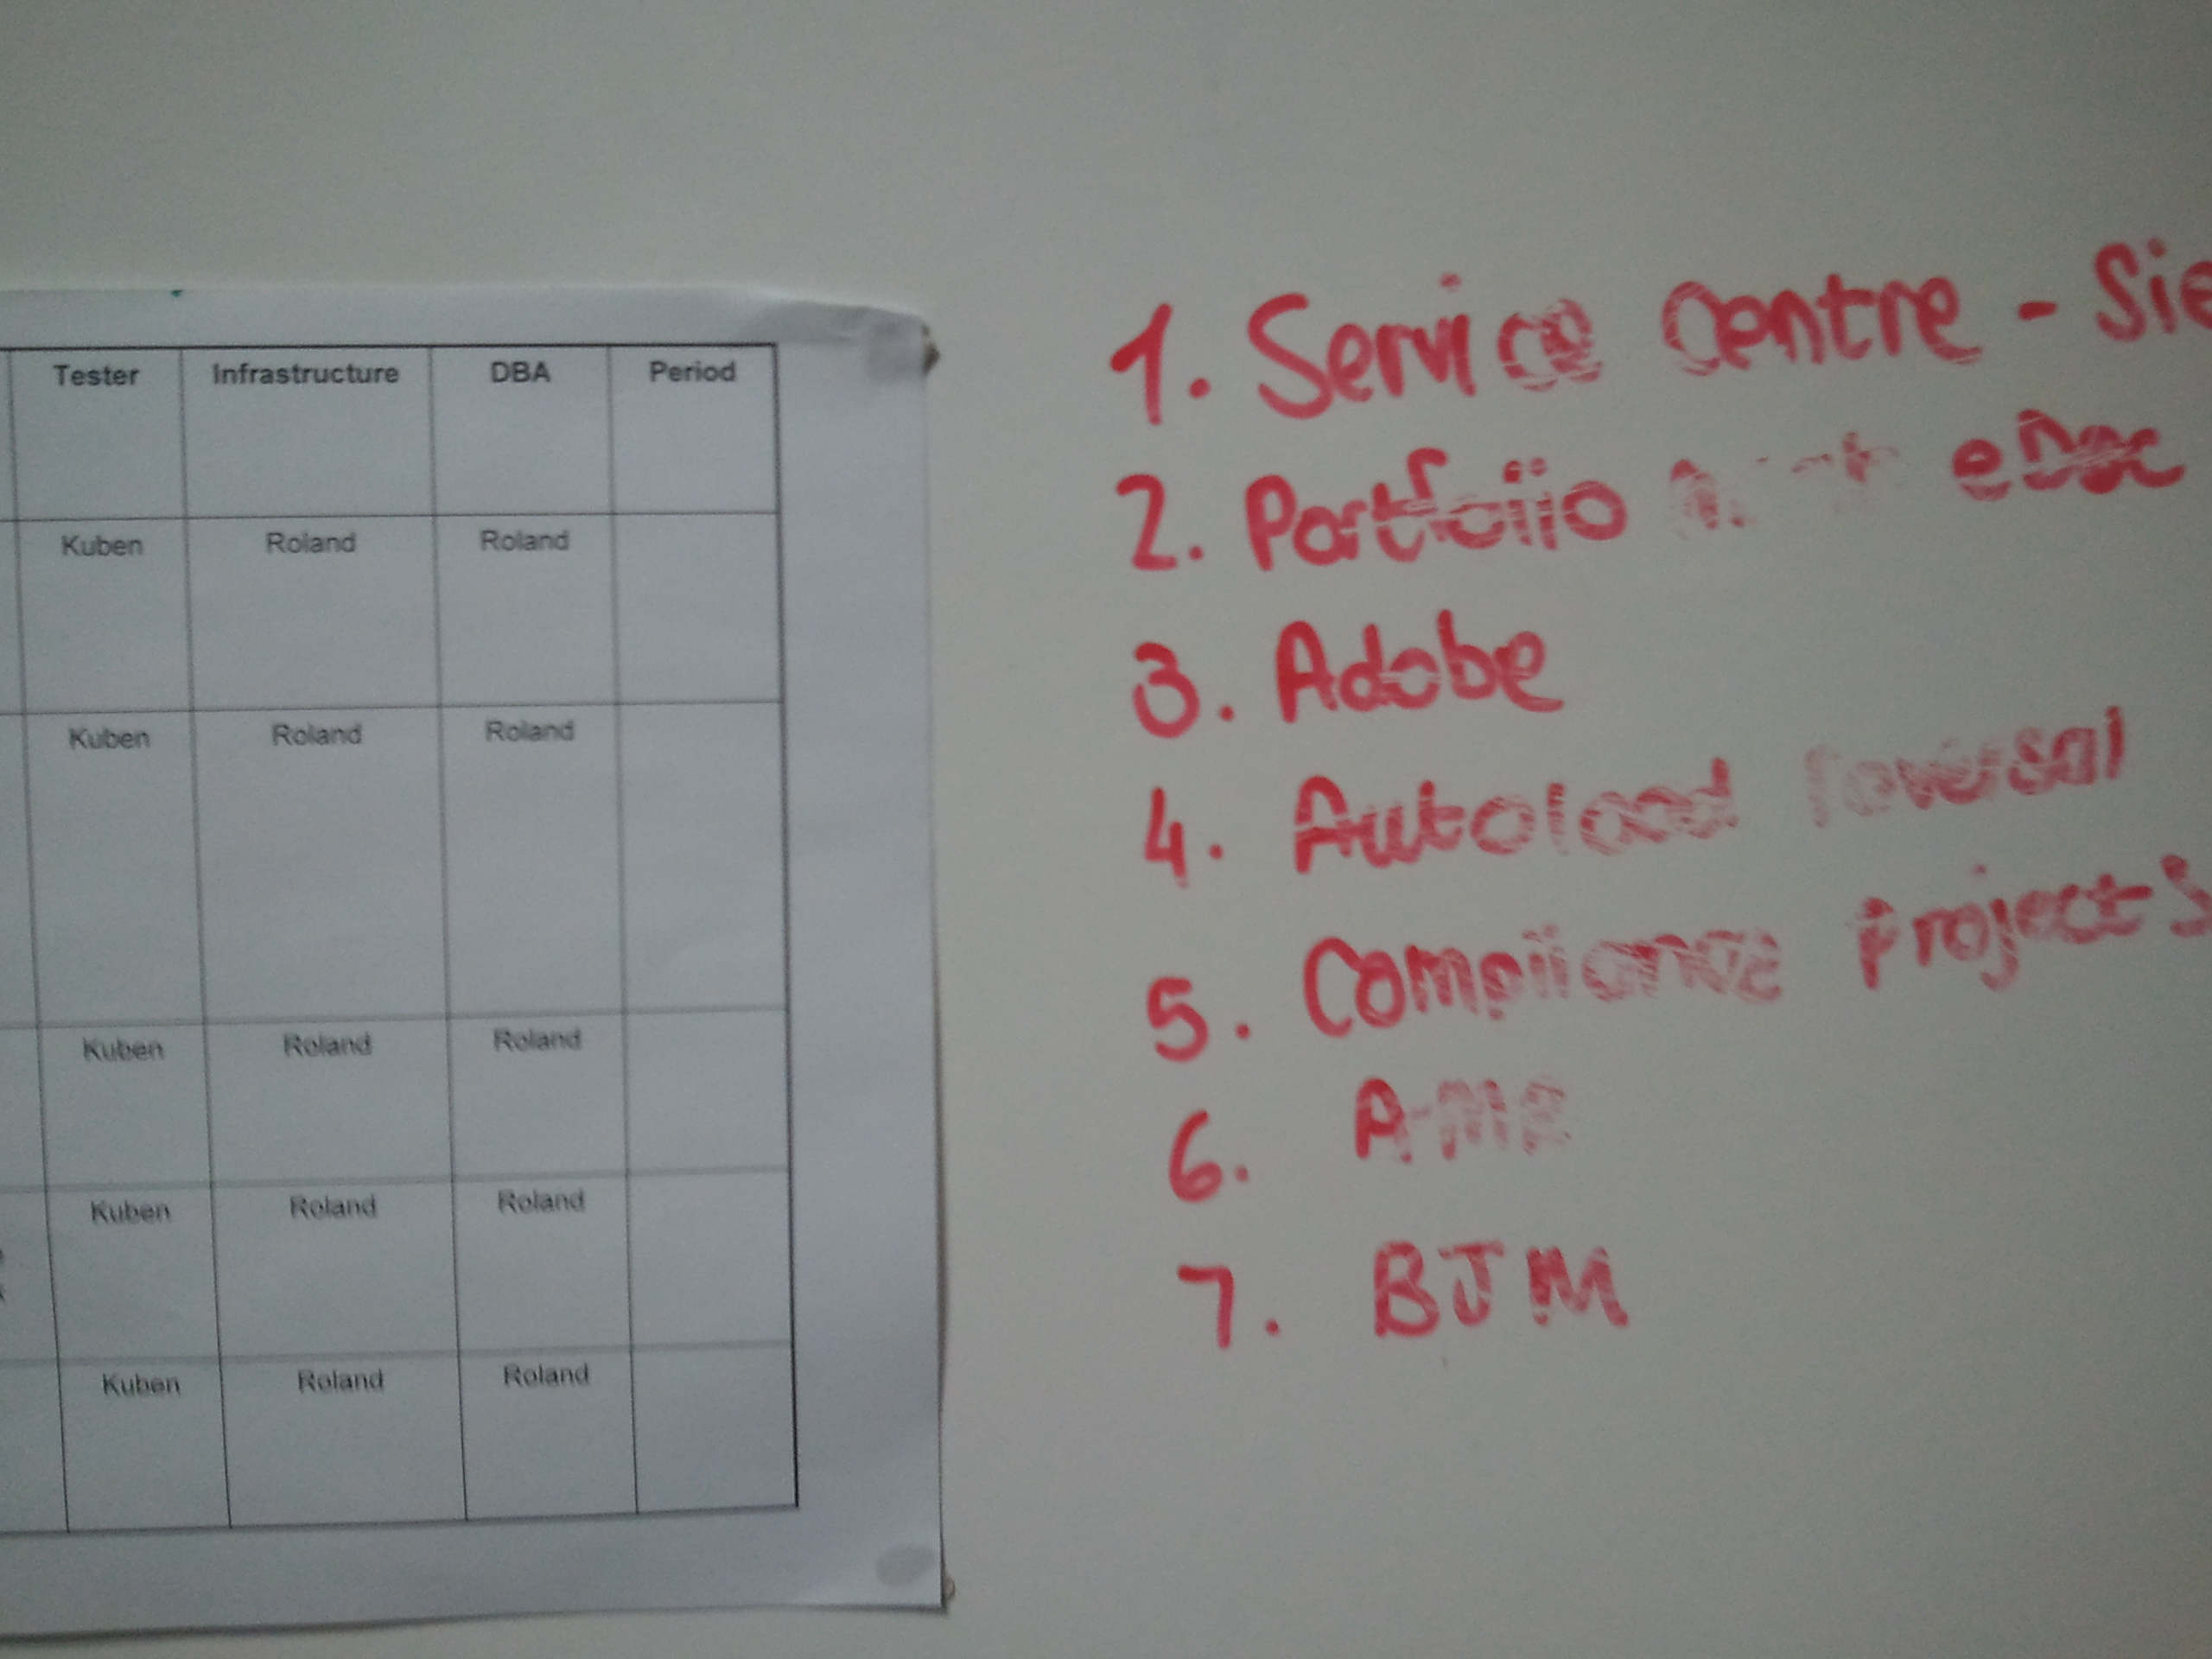 Tester Infrastructure DBA Period
Kuben Roland Roland
Kuben Roland Roland
Kuben Roland Roland
Kuben Roland Roland
Kuben Roland Roland
1. Service Centre - Sie
2. Portfolio eDoc
3. Adobe
4. Autoload reversal
5. Compliance Projects
6.
7. BJM